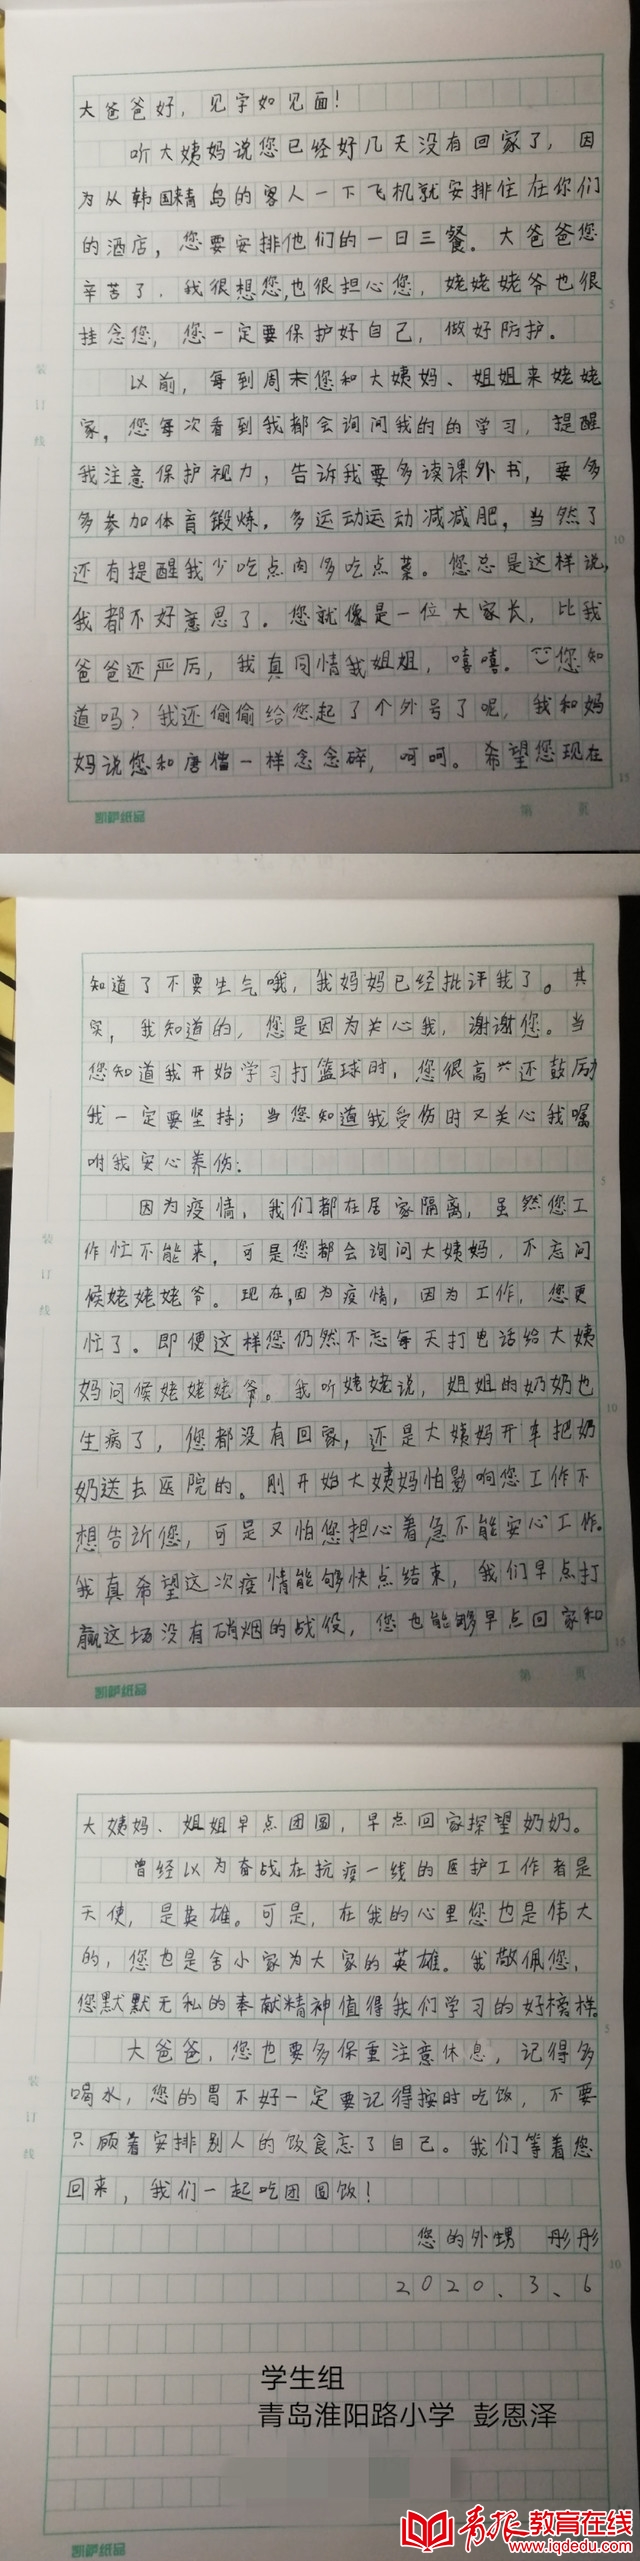 大爸爸好，见字如见面！
听大姨妈说您已经好几天没有回家了，因
为从韩国来青岛的客人一下飞机就安排住在你们
的酒店，您要安排他们的一日三餐。大爸爸您
辛苦了，我很想您，也很担心您，姥姥姥爷也很
挂念您，您一定要保护好自己，做好防护。
以前，每到周末您和大姨妈、姐姐来姥姥
家，您每次看到我都会询问我的的学习，提醒
我注意保护视力，告诉我要多读课外书，要多
多参加体育锻炼，多运动运动减减肥，当然了
还有提醒我少吃点肉多吃点菜。您总是这样说，
我都不好意思了。您就像是一位大家长，比我
爸爸还严厉，我真同情我姐姐，嘻嘻。您知
道吗？我还偷偷给您起了个外号了呢，我和妈
妈说您和唐僧一样念念碎，呵呵。希望您现在
凯萨纸品
第 页
装
订
线
5
10
15
知道了不要生气哦，我妈妈已经批评我了。其
实，我知道的，您是因为关心我，谢谢您。当
您知道我开始学习打篮球时，您很高兴还鼓励
我一定要坚持；当您知道我受伤时又关心我嘱
咐我安心养伤；
因为疫情，我们都在居家隔离，虽然您工
作忙不能来，可是您都会询问大姨妈，不忘问
候姥姥姥爷。现在，因为疫情，因为工作，您更
忙了。即便这样您仍然不忘每天打电话给大姨
妈问候姥姥姥爷。我听姥姥说，姐姐的奶奶也
生病了，您都没有回家，还是大姨妈开车把奶
奶送去医院的。刚开始大姨妈怕影响您工作不
想告诉您，可是又怕您担心着急不能安心工作。
我真希望这次疫情能够快点结束，我们早点打
赢这场没有硝烟的战役，您也能够早点回家和
凯萨纸品
第 页
装
订
线
5
10
15
大姨妈、姐姐早点团圆，早点回家探望奶奶。
曾经以为奋战在抗疫一线的医护工作者是
天使，是英雄。可是，在我的心里您也是伟大
的，您也是舍小家为大家的英雄。我敬佩您，
您默默无私的奉献精神值得我们学习的好榜样。
大爸爸，您也要多保重注意休息，记得多
喝水，您的胃不好一定要记得按时吃饭，不要
只顾着安排别人的饮食忘了自己。我们等着您
回来，我们一起吃团圆饭！
您的外甥 彤彤
2020.3.6
装
订
线
5
10
学生组
青岛淮阳路小学 彭恩泽
凯萨纸品
青报教育在线
www.iqdedu.com